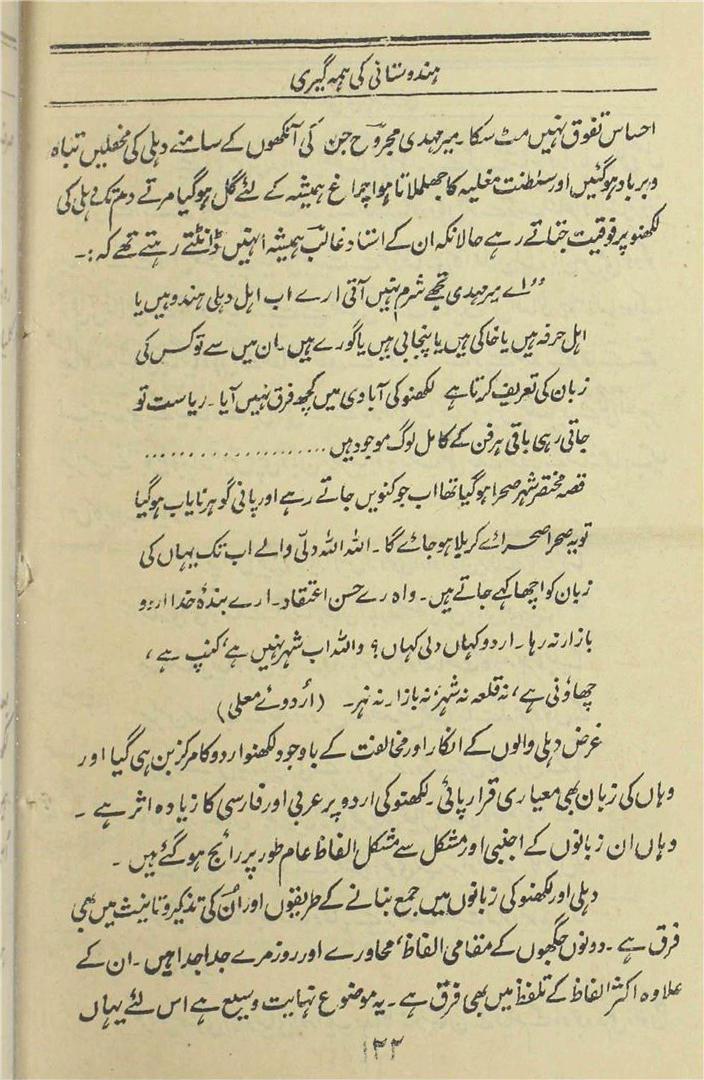 ہندوستانی کی ہمہ گیری
احساس تفوق نہیں مٹ سکا۔ میر مہدی مجروح جن کی آنکھوں کے سامنے دہلی کی محفلیں تباہ
و برباد ہوگئیں اور سلطنت مغلیہ کا جھلملاتا ہوا چراغ ہمیشہ کے لئے گل ہوگیا مرتے دم تک دہلی کی
لکھنو پر فوقیت جتاتے رہے حالانکہ ان کے استاد غالب ہمیشہ انہیں ڈانٹتے رہتے تھے کہ :۔
”اے میر مہدی تجھے شرم نہیں آتی ارے اب اہل دہلی ہندو ہیں یا
اہل حرفہ ہیں یا خاکی ہیں یا پنجابی ہیں یا گورے ہیں۔ ان میں سے تو کس کی
زبان کی تعریف کرتا ہے لکھنو کی آبادی میں کچھ فرق نہیں آیا۔ ریاست تو
جاتی رہی باقی ہر فن کے کامل لوگ موجود ہیں ....................
قصہ مختصر شہر صحرا ہوگیا تھا اب جو کنویں جاتے رہے اور پانی گوہر نایاب ہوگیا
تو یہ صحرا صحرائے کربلا ہو جائے گا۔ اللہ اللہ دلی والے اب تک یہاں کی
زبان کو اچھا کہے جاتے ہیں۔ واہ رے حسن اعتقاد۔ ارے بندۂ خدا اردو
بازار نہ رہا۔ اردو کہاں دلی کہاں؟ واللہ اب شہر نہیں ہے، کنپ ہے،
چھاؤنی ہے، نہ قلعہ نہ شہر، نہ بازار۔ نہ نہر۔ (اُردوئے معلی)
غرض دہلی والوں کے انکار اور مخالفت کے باوجود لکھنو اردو کا مرکز بن ہی گیا اور
وہاں کی زبان بھی معیاری قرار پائی۔ لکھنو کی اردو پر عربی اور فارسی کا زیادہ اثر ہے۔
وہاں ان زبانوں کے اجنبی اور مشکل سے مشکل الفاظ عام طور پر رائج ہوگئے ہیں۔
دہلی اور لکھنو کی زبانوں میں جمع بنانے کے طریقوں اور اُن کی تذکیر و تانیث میں بھی
فرق ہے۔ دونوں جگہوں کے مقامی الفاظ، محاورے اور روزمرے جدا جدا ہیں۔ ان کے
علاوہ اکثر الفاظ کے تلفظ میں بھی فرق ہے۔ یہ موضوع نہایت وسیع ہے اس لئے یہاں